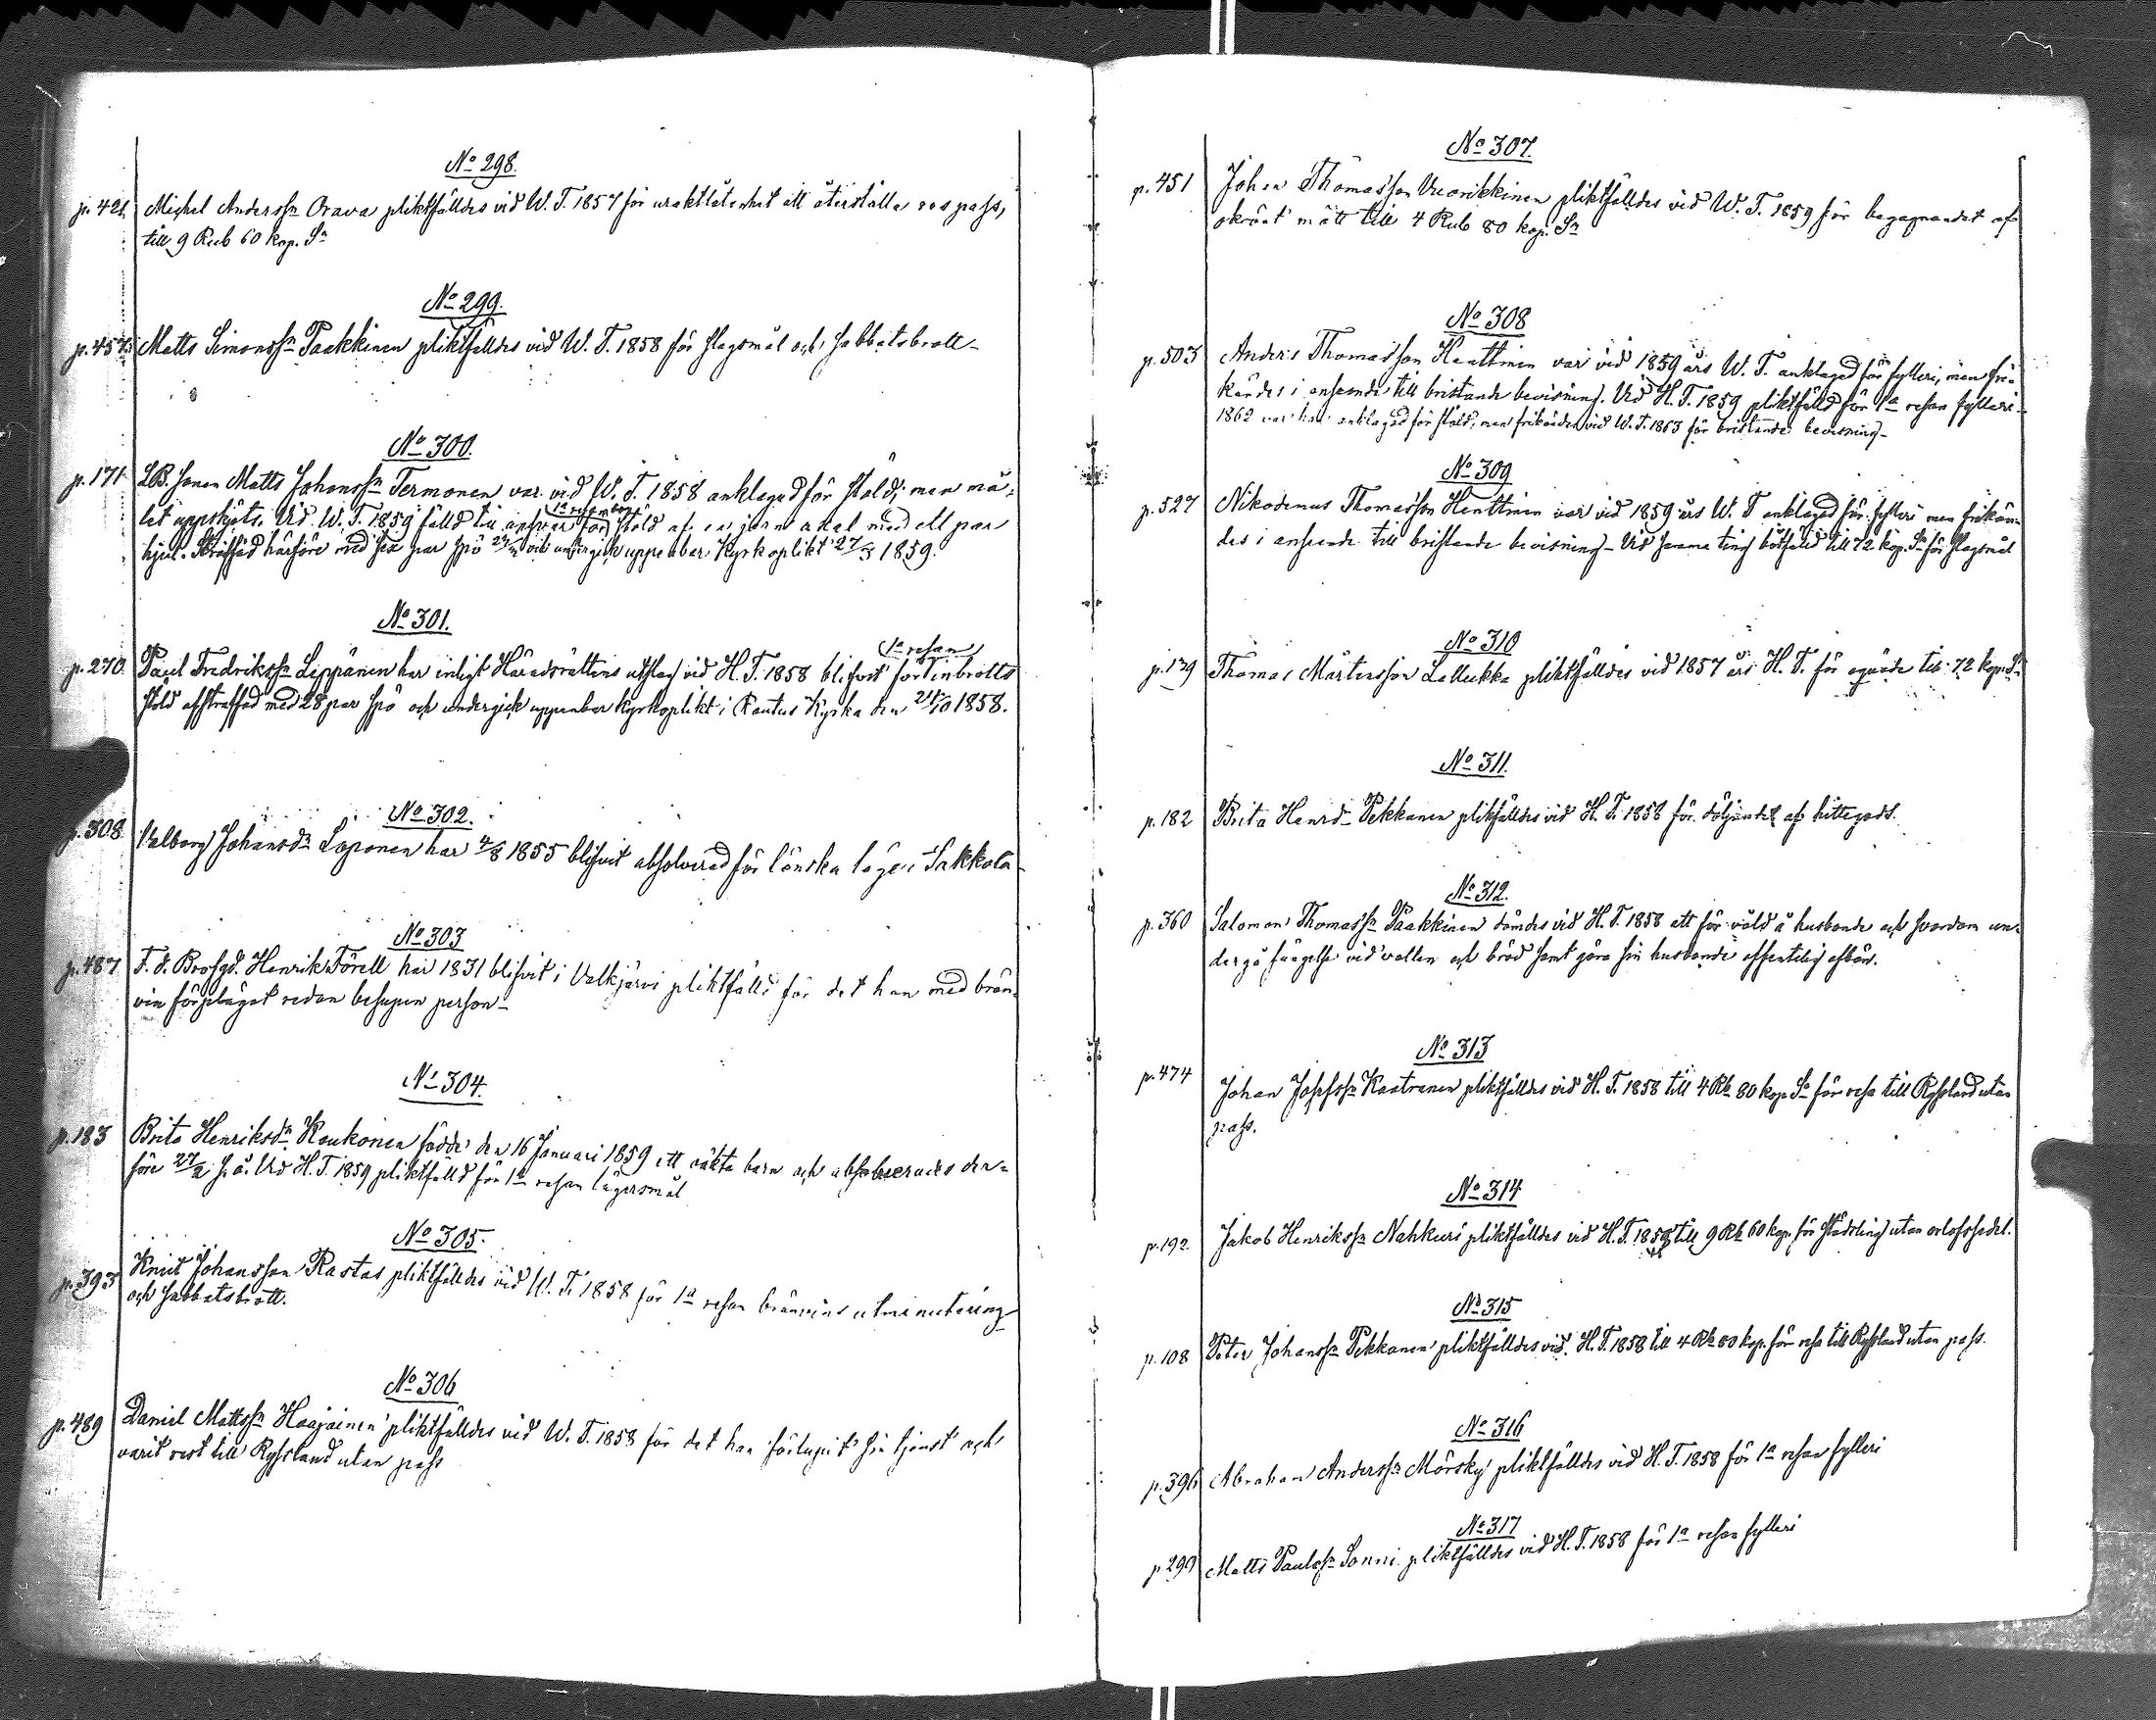 No 298.
p. 421. Michel Anderss:n Orava pliktfälldes vid W. T. 1857 för uraktlåtenhet att återställa respass,
till 9 Rub 60 kop. S:r
No 299.
p. 457. Matts Simonss:n Paakkinen pliktfälldes vid W. T. 1858 för slagsmål och sabbatsbrott
No 300.
p. 171 LB. sonen Matts Johanss:n Termonen var vid W. T. 1858 anklagad för stöld; men må-
1a resan
let uppskjöts. Vid W. T. 1859 fälld till ansvar för stöld af en järn axel med ett par
hjul. Straffad härföre med sex par spö och undergick uppenbar Kyrkoplikt 27/3 1859.
No 301.
1a resan
p. 270. Paul Fredrikss:n Leppänen har enligt Häradsrättens utslag vid H. T. 1858 blifvit för inbrotts
stöld afstraffad med 28 par spö och undergick uppenbar kyrkoplikt i Rautus Kyrka den 24/10 1858.
No 302.
p. 308 Walborg Johansd:r Loponen har 4/8 1855 blifvit absolverad för lönska läge i Sakkola
No 303
p. 487 F. d. Brofgd. Henrik Förell har 1831 blifvit i Valkjärvi pliktfälld för det han med brän-
vin förplägat redan besupen person
No 304.
p. 183 Brita Henriksd:r Koukonen födde den 16 Januari 1859 ett oäkta barn och absolverades der-
före 27/2 s. å. Vid H. T. 1859 pliktfälld för 1a resan lägersmål
No 305.
p. 393 Knut Johansson Rastas pliktfälldes vid W. T. 1858 för 1a resan bränvins utminutering
och sabbatsbrott.
No 306
p. 489 Daniel Mattss:n Haajainen pliktfälldes vid W. T. 1858 för det han förlupit sin tjenst och
varit rest till Ryssland utan pass
No 307.
p. 451 Johan Thomasson Vuorikkinen pliktfälldes vid W. T. 1859 för begagnandet af
okrönt mått till 4 Rub 80 kop. S:r
No 308
p. 503 Anders Thomasson Henttinen var vid 1859 års W. T. anklagad för fylleri, men fri-
kändes i anseende till bristande bevisning. Vid H. T. 1859 pliktfälld för 1a resan fylleri
1862 var han anklagad för stöld, men frikändes vid W. T. 1863 för bristande bevisning
No 309
p. 527 Nikodemus Thomasson Henttinen var vid 1859 års W. T anklagad för fylleri men frikän-
des i anseende till bristande bevisning - Vid samma ting bötfälld till 72 kop. S:r för slagsmål
No 310
p. 129 Thomas Mårtensson Lallukka pliktfälldes vid 1857 års H. T. för oqväde till 72 kop. S:r
No 311.
p. 182 Brita Henrsd:r Pekkanen pliktfälldes vid H. T. 1858 för döljandet af hittegods.
No 312.
p. 360 Salomon Thomass:n Paakkinen dömdes vid H. T. 1858 att för våld å husbonde och svordom un-
dergå fängelse vid vatten och bröd samt göra sin husbonde offentelig afbön.
No 313
p. 474 Johan Josefss:n Kaatranen pliktfälldes vid H. T. 1858 till 4 Rb 80 kop. S:r för resa till Ryssland utan
pass.
No 314
p. 192 Jakob Henrikss:n Nahkuri pliktfälldes vid H. T. 1858 till 9 Rb 60 kop. för städsling utan orlofssedel.
No 315
p. 108 Peter Johanss:n Pekkanen pliktfälldes vid H. T. 1858 till 4 Rb 80 kop. för resa till Ryssland utan pass.
No 316
p. 396 Abraham Anderss:n Mörsky pliktfälldes vid H. T. 1858 för 1a resan fylleri
No 317
p. 299 Matts Paulss:n Sonni pliktfälldes vid H. T. 1858 för 1a resan fylleri